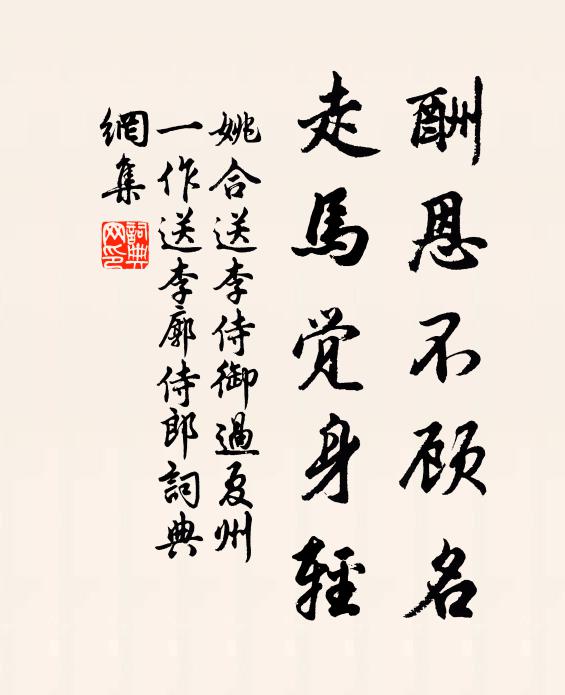 酬恩不顾名
走馬觉身輕
姚合送李侍御過夏州
一作送李廓侍郎詞典
網集
詞典
网印